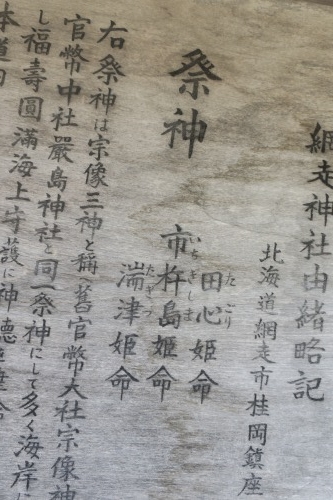 網走神社由緒略記
北海道網走市桂岡鎮座
祭神
田心姫命
たごり
市杵島姫命
いちきしま
湍津姫命
たぎつ
右祭神は宗像三神と稱舊官幣大社宗像神
官幣中社嚴島神社と同一祭神にして多く海岸に
し福壽圓滿海上守護に神德
本道內